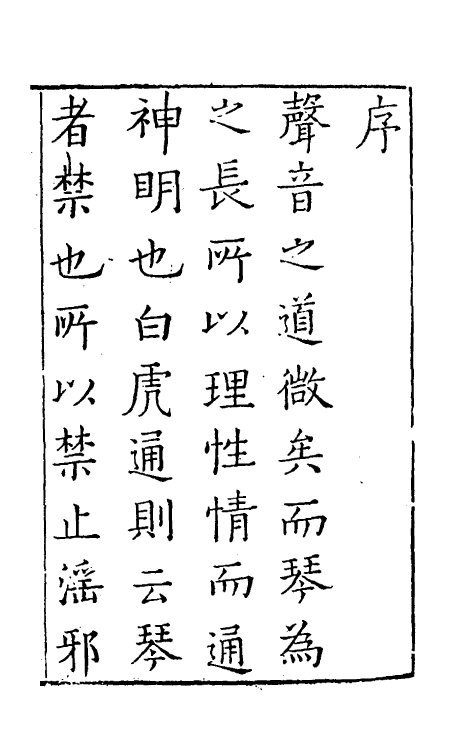 序
聲音之道微矣而琴為
之長所以理性情而通
神明也白虎通則云琴
者禁也所以禁止淫邪